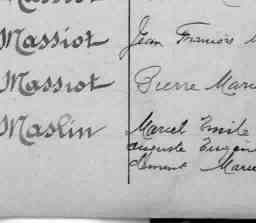 Massiot Jean François
Massiot Pierre Marie
Maslin Marcel Emile
Auguste Eugène
Clément Marie